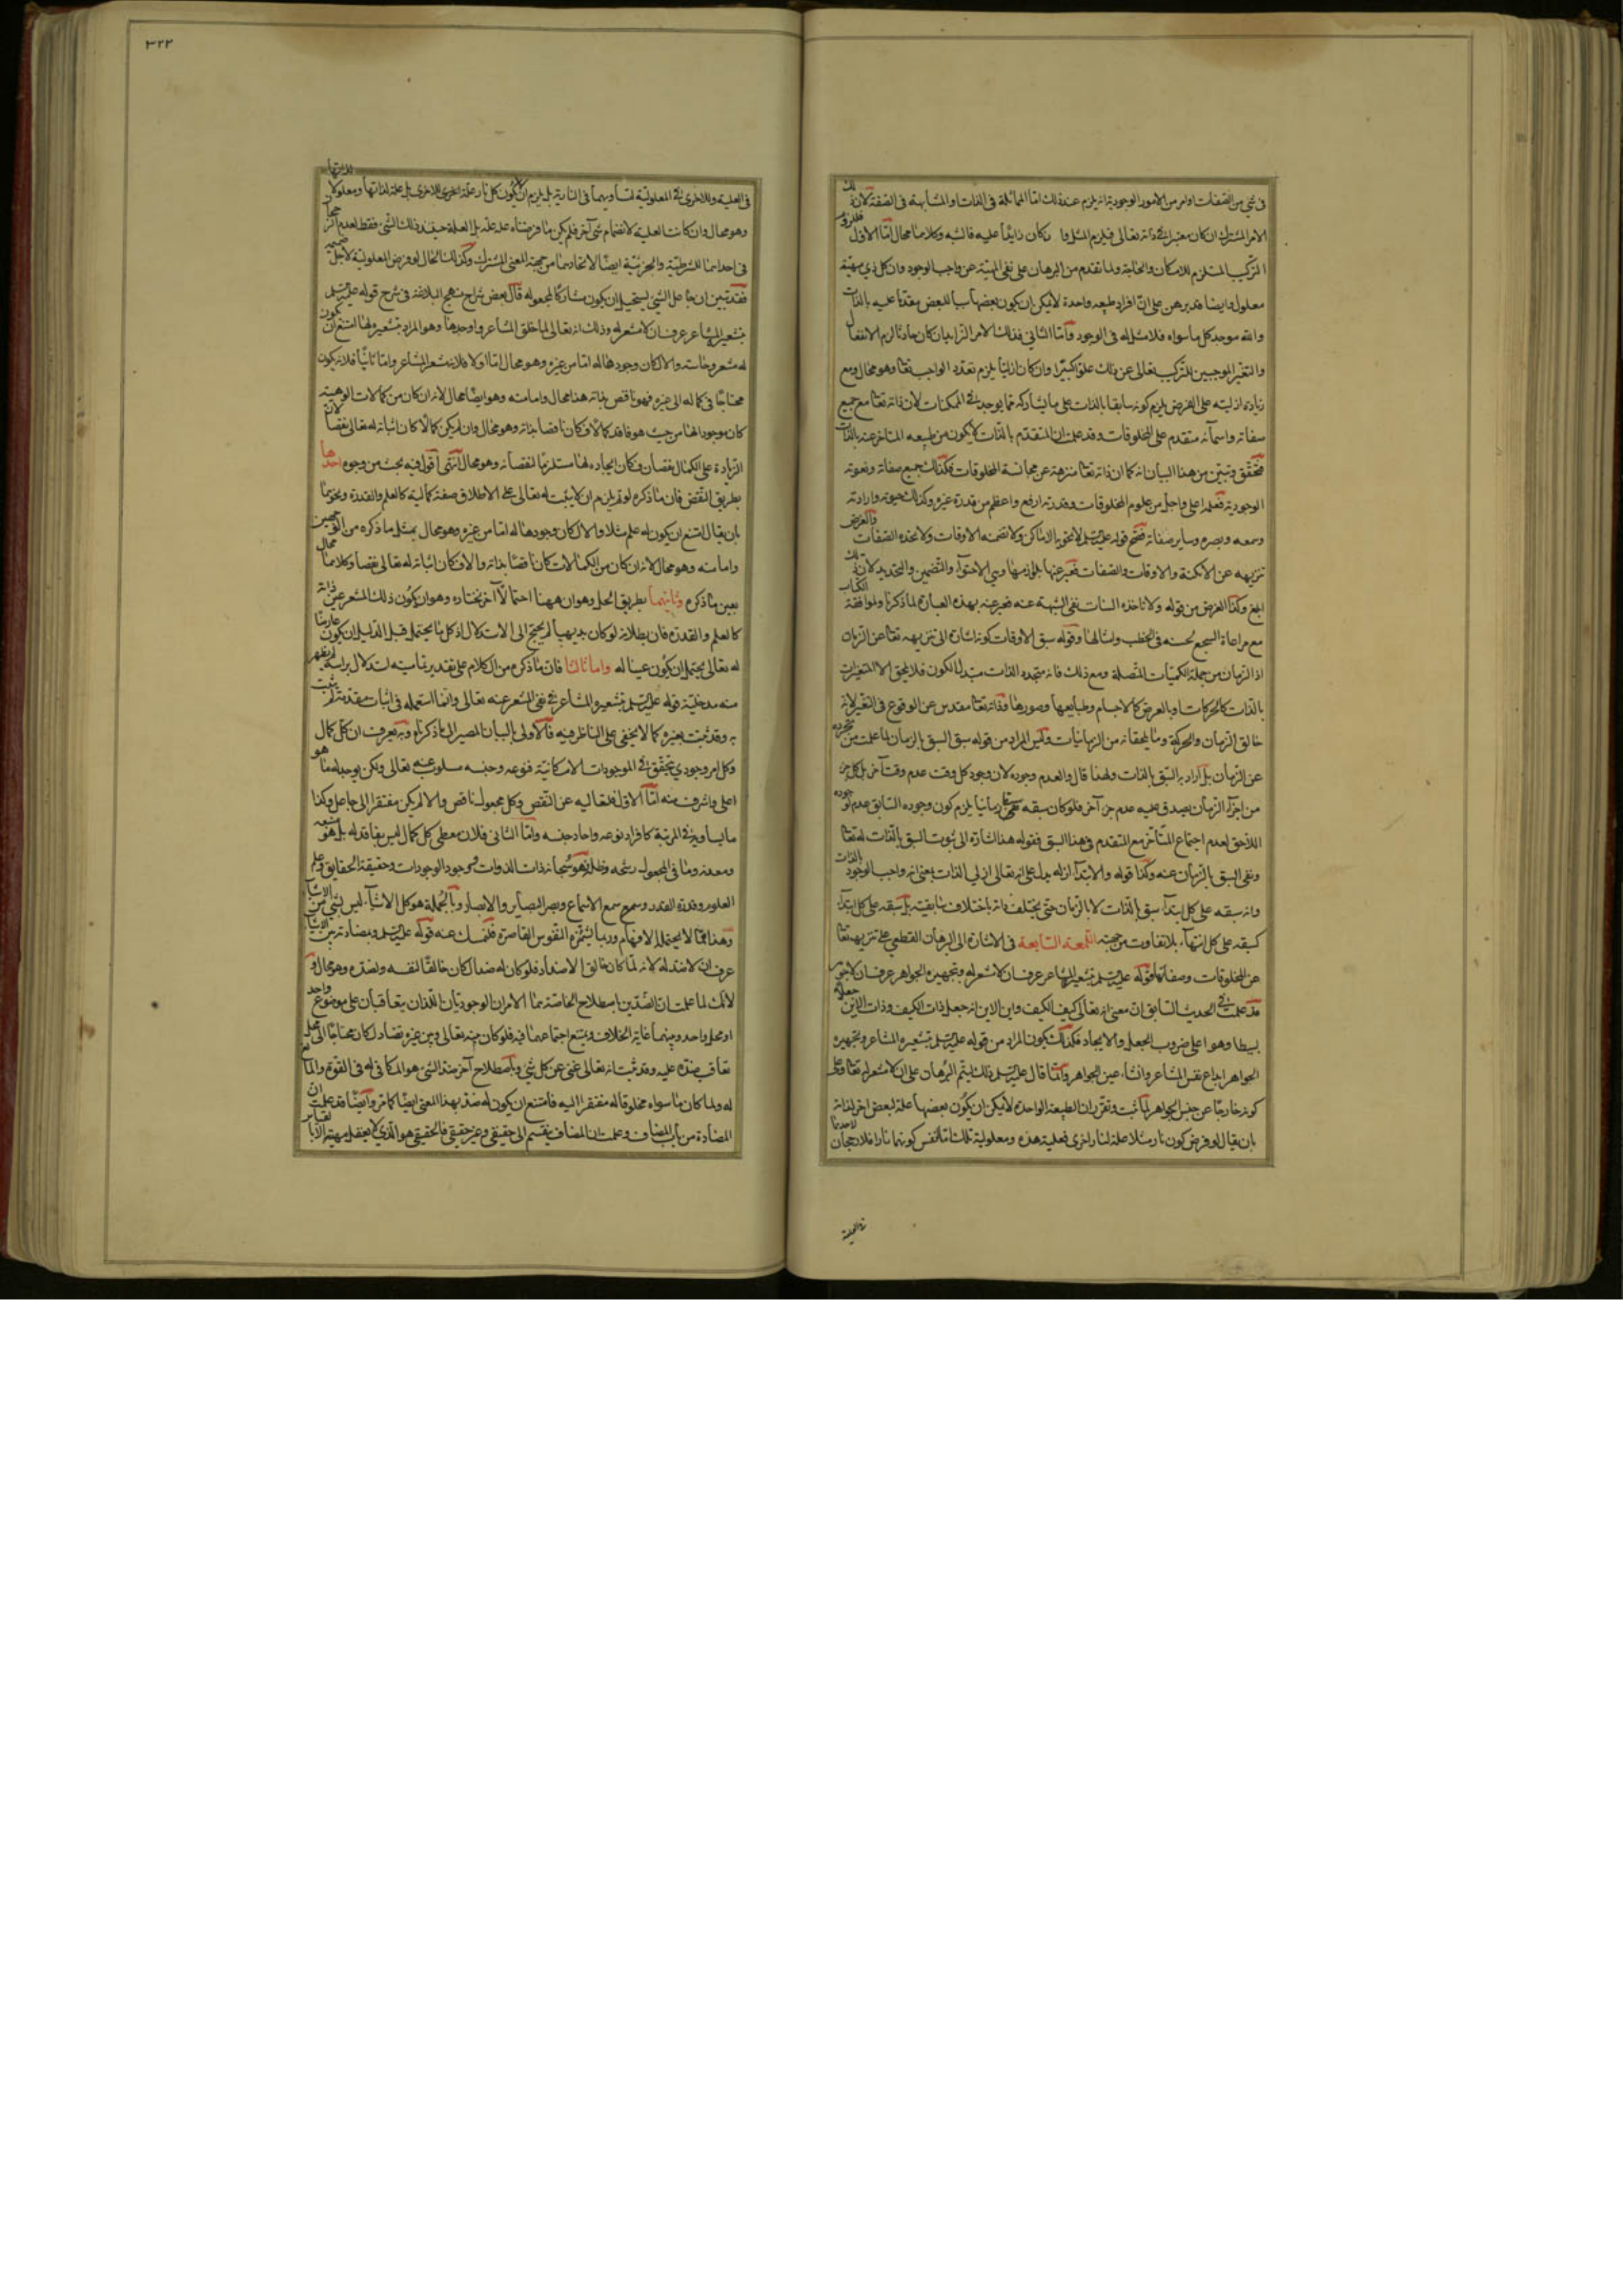 في شيء من الصفات او امر من الامور الوجودية انه يلزم عند ذلك اما المماثلة في الذات والمشابهة في الصفة لان ذلك
الامر المشترك ان كان معتبرا في ذاته تعالى فيلزم المثل وا كان زايدا عليه فالشبه وكلاهما محال اما الاول فللزوم
التركيب المستلزم للامكان والحاجة ولما تقدم من البرهان على نفي المهية عن واجب الوجود وان كل ذي مهية
معلول وايضا قد برهن على ان افراد طبيعه واحدة لا يمكن ان يكون بعضها سببا للبعض متقدما عليه بالذات
والله موجد كل ما سواه فلا مثل له في الوجود واما الثاني فذلك الامر الزايد ان كان حادثا لزم الانفعال
والتغير الموجبين للتركيب تعالى عن ذلك علوا كبيرا وان كان ازليا يلزم تعدد الواجب تعا وهو محال ومع
زيادة ازليته على الفرض يلزم كونه سابقا بالذات على ما يشاركه مما يوجد في الممكنات لان ذاته تعا مع جميع
صفاته واسمائه متقدم على المخلوقات وقد علمت ان المتقدم بالذات لا يكون من طبيعه المتاخر عنه بالذات
فتحقق وتبين من هذا البيان انه كما ان ذاته تعا منزهة عن مجانسة المخلوقات فكذلك جميع صفاته ونعوته
الوجودية فعلمه اعلى واجل من علوم المخلوقات وقدرته ارفع واعظم من قدرة غيره وكذلك حيوته وارادته
وسمعه وبصره وساير صفاته فصح قوله عليه السلم لا تحويه الاماكن ولا تضمنه الاوقات ولا تحده الصفات والغرض
تنزيهه عن الامكنة والاوقات والصفات فعبر عنها بلوازمها وهي الاحتواء والتضمين والتحديد لان ذلك
ابلغ وكذا الغرض من قوله ولا تاخذه السنات نفي الشبهة عنه فعبر عنه بهذه العبارة لما ذكرنا ولموافقة الكتاب
مع مراعاة السجع لحسنه في الخطب وامثالها وقوله سبق الاوقات كونه اشارة الى تنزيهه تعا عن الزمان
اذ الزمان من جملة الكميات المتصلة ومع ذلك فانه متجدد الذات متبدل الكون فلا يلحق الا المتغيرات
بالذات كالحركات او بالعرض كالاجسام وطبايعها وصورها وذاته تعا مقدس عن الوقوع في التغير لانه
خالق الزمان والحركة وما يلحقانه من الزمانيات وليس المراد من قوله سبق السبق بالزمان لما علمت من تجرده
عن الزمان بل اراد به السبق بالذات ولهذا قال والعدم وجوده لان وجود كل وقت عدم وقت آخر بل كل جزء
من اجزاء الزمان يصدق عليه عدم جزء آخر فلو كان سبقه تعا زمانيا يلزم كون وجوده السابق عدم لوجوده
اللاحق لعدم اجتماع المتاخر مع المتقدم في هذا السبق فقوله هذا اشارة الى ثبوت السبق بالذات له تعا
ونفي السبق بالزمان عنه وكذا قوله والابتداء ازله يدل على انه تعالى ازلي الذات بمعنى انه واجب الوجود بالذات
وانه سبقه على كل ابتداء سبق بالذات لا بالزمان حتى يختلف ذاته باختلاف سابقيته بل سبقه على كل ابتداء
كسبقه على كل انتهاء بلا تفاوت من جهته اللمعة السابعة في الاشارة الى البرهان القطعي على تنزيهه تعا
عن المخلوقات وصفاتها قوله عليه السلم بتشعيره المشاعر عرف ان لا مشعر له وبتجهيره الجواهر عرف ان لا جوهر
قد علمت في الحديث السابق ان معنى انه تعالى كيف الكيف واين الاين انه جعل ذات الكيف وذات الاين جعلا
بسيطا وهو اعلى ضروب الجعل والايجاد فكذلك يكون المراد من قوله عليه السلم بتشعيره المشاعر وتجهيره
الجواهر ابداع نفس المشاعر وانشاء عين الجواهر وانما قال عليه السلم ذلك ليتم البرهان على ان لا مشعر له تعا وعلى
كونه خارجا عن جنس الجواهر لما ثبت وتقرر ان الطبيعة الواحدة لا يمكن ان يكون بعضها علة لبعض اخر لذاته
بان يقال لو فرض كون نار مثلا علة لنار اخرى فعلية هذه ومعلولية تلك اما لنفس كونهما نارا فلا رجحان لاحديهما
في العلية والاخرى في المعلولية لتساويهما في النارية بل يلزم ان يكون كل نار علة للاخرى بل علة لذاتها ومعلولا لذاتها
وهو محال وان كانت العلية لانضمام شيء آخر فلم يكن ما فرضناه علة علة بل العلة حينئذ ذلك الشيء فقط لعدم الرجحان
في احدهما للشرطية والجزئية ايضا لاتحادهما من جهة المعنى المشترك وكذلك الحال لو فرض المعلولية لاجل ضميمة
فقد تبين ان جاعل الشيء يستحيل ان يكون مشاركا لمجعوله قال بعض شراح نهج البلاغة في شرح قوله عليه السلم
بتشعيره المشاعر عرف ان لا مشعر له وذلك انه تعالى لما خلق المشاعر واوجدها وهو المراد بتشعيره لها امتنع ان يكون
له مشعر وحاسة والا لكان وجودها له اما من غيره وهو محال اما اولا فلانه مشعر المشاعر واما ثانيا فلانه يكون
محتاجا في كماله الى غيره فهو ناقص بذاته هذا محال واما منه وهو ايضا محال لانه ان كان من كمالات الوهيته
كان موجودا لها من حيث هو فاقد كمالا فكان ناقصا بذاته وهو محال وان لم يكن كمالا كان اثباته له تعالى نقصا لان
الزيادة على الكمال نقصان فكان ايجاده لها مستلزما لنقصانه وهو محال انتهى اقول فيه بحث من وجوه احدها
بطريق النقض فان ما ذكره لو تم يلزم ان لا يثبت له تعالى على الاطلاق صفة كمالية كالعلم والقدرة ونحوهما
بان يقال امتنع ان يكون له علم مثلا والا لكان وجودها له اما من غيره وهو محال بمثل ما ذكره من الوجهين
واما منه وهو محال لانه ان كان من الكمالات كان ناقصا بذاته والا فكان اثباته له تعالى نقصا وكلاهما محال
بعين ما ذكره وثانيهما بطريق الحل وهو ان ههنا احتمالا آخر نختاره وهو ان يكون ذلك المشعر عين ذاته
كالعلم والقدرة فان بطلانه لو كان بديهيا لم يحتج الى الاستدلال اذ كل ما يحتمل قبل الدليل ان يكون عارضا
له تعالى يحتمل ان يكون عينا له واما ثالثا فان ما ذكره من الكلام على تقدير تماميته استدلال براسه لم يظهر
منه مدخلية قوله عليه السلم بتشعيره المشاعر في نفي المشعر عنه تعالى وانما استعمله في اثبات مقدمة لم تثبت
به وقد ثبت بغيره كما لا يخفى على الناظر فيه فالاولى بالبيان المصير الى ما ذكرناه وبه يعرف ان كل كمال
وكل امر وجودي يتحقق في الموجودات الامكانية فنوعه وجنسه مسلوب عنه تعالى ولكن يوجد له ما هو
اعلى واشرف منه اما الاول فلتعاليه عن النقص وكل مجعول ناقص والا لم يكن مفتقرا الى جاعل وكذا
ما يساويه في المرتبة كافراد نوعه واحاد جنسه واما الثاني فلان معطي كل كمال ليس بفاقد له بل هو منبعه
ومعدنه وما في المجعول رشحه وظله فهو سبحانه ذات الذوات ووجود الوجودات وحقيقة الحقايق وعلم
العلوم وقدرة القدر وسمع سمع الاسماع وبصر البصاير والابصار وبالجملة هو كل الاشياء ليس بشيء من الاشياء
وهذا مما لا يحتمله الافهام وربما يشمئزه النفوس القاصرة فلنمسك عنه قوله عليه السلم وبمضادته بين الاشياء
عرف ان لا ضد له لانه لما كان خالق الاضداد فلو كان له ضد لكان خالقا لنفسه ولضده وهو محال و
لانك لما علمت ان الضدين باصطلاح الخاصة هما الامران الوجوديان اللذان يتعاقبان على موضوع واحد
او محل واحد وبينهما غاية الخلاف ويمتنع اجتماعهما فيه فلو كان بينه تعالى وبين غيره تضاد لكان محتاجا الى محل
تعاقب ضده عليه وقد ثبت انه تعالى غني عن كل شيء وباصطلاح آخر ضد الشيء هو المكافي له في القوة والمانع
له ولما كان ما سواه مخلوقا له مفتقرا اليه فامتنع ان يكون له ضد بهذا المعنى ايضا كما مر وايضا قد علمت ان
المضادة من باب المضاف وعلمت ان المضاف ينقسم الى حقيقي وغير حقيقي فالحقيقي هو الذي لا يعقل مهيته الا بالقياس